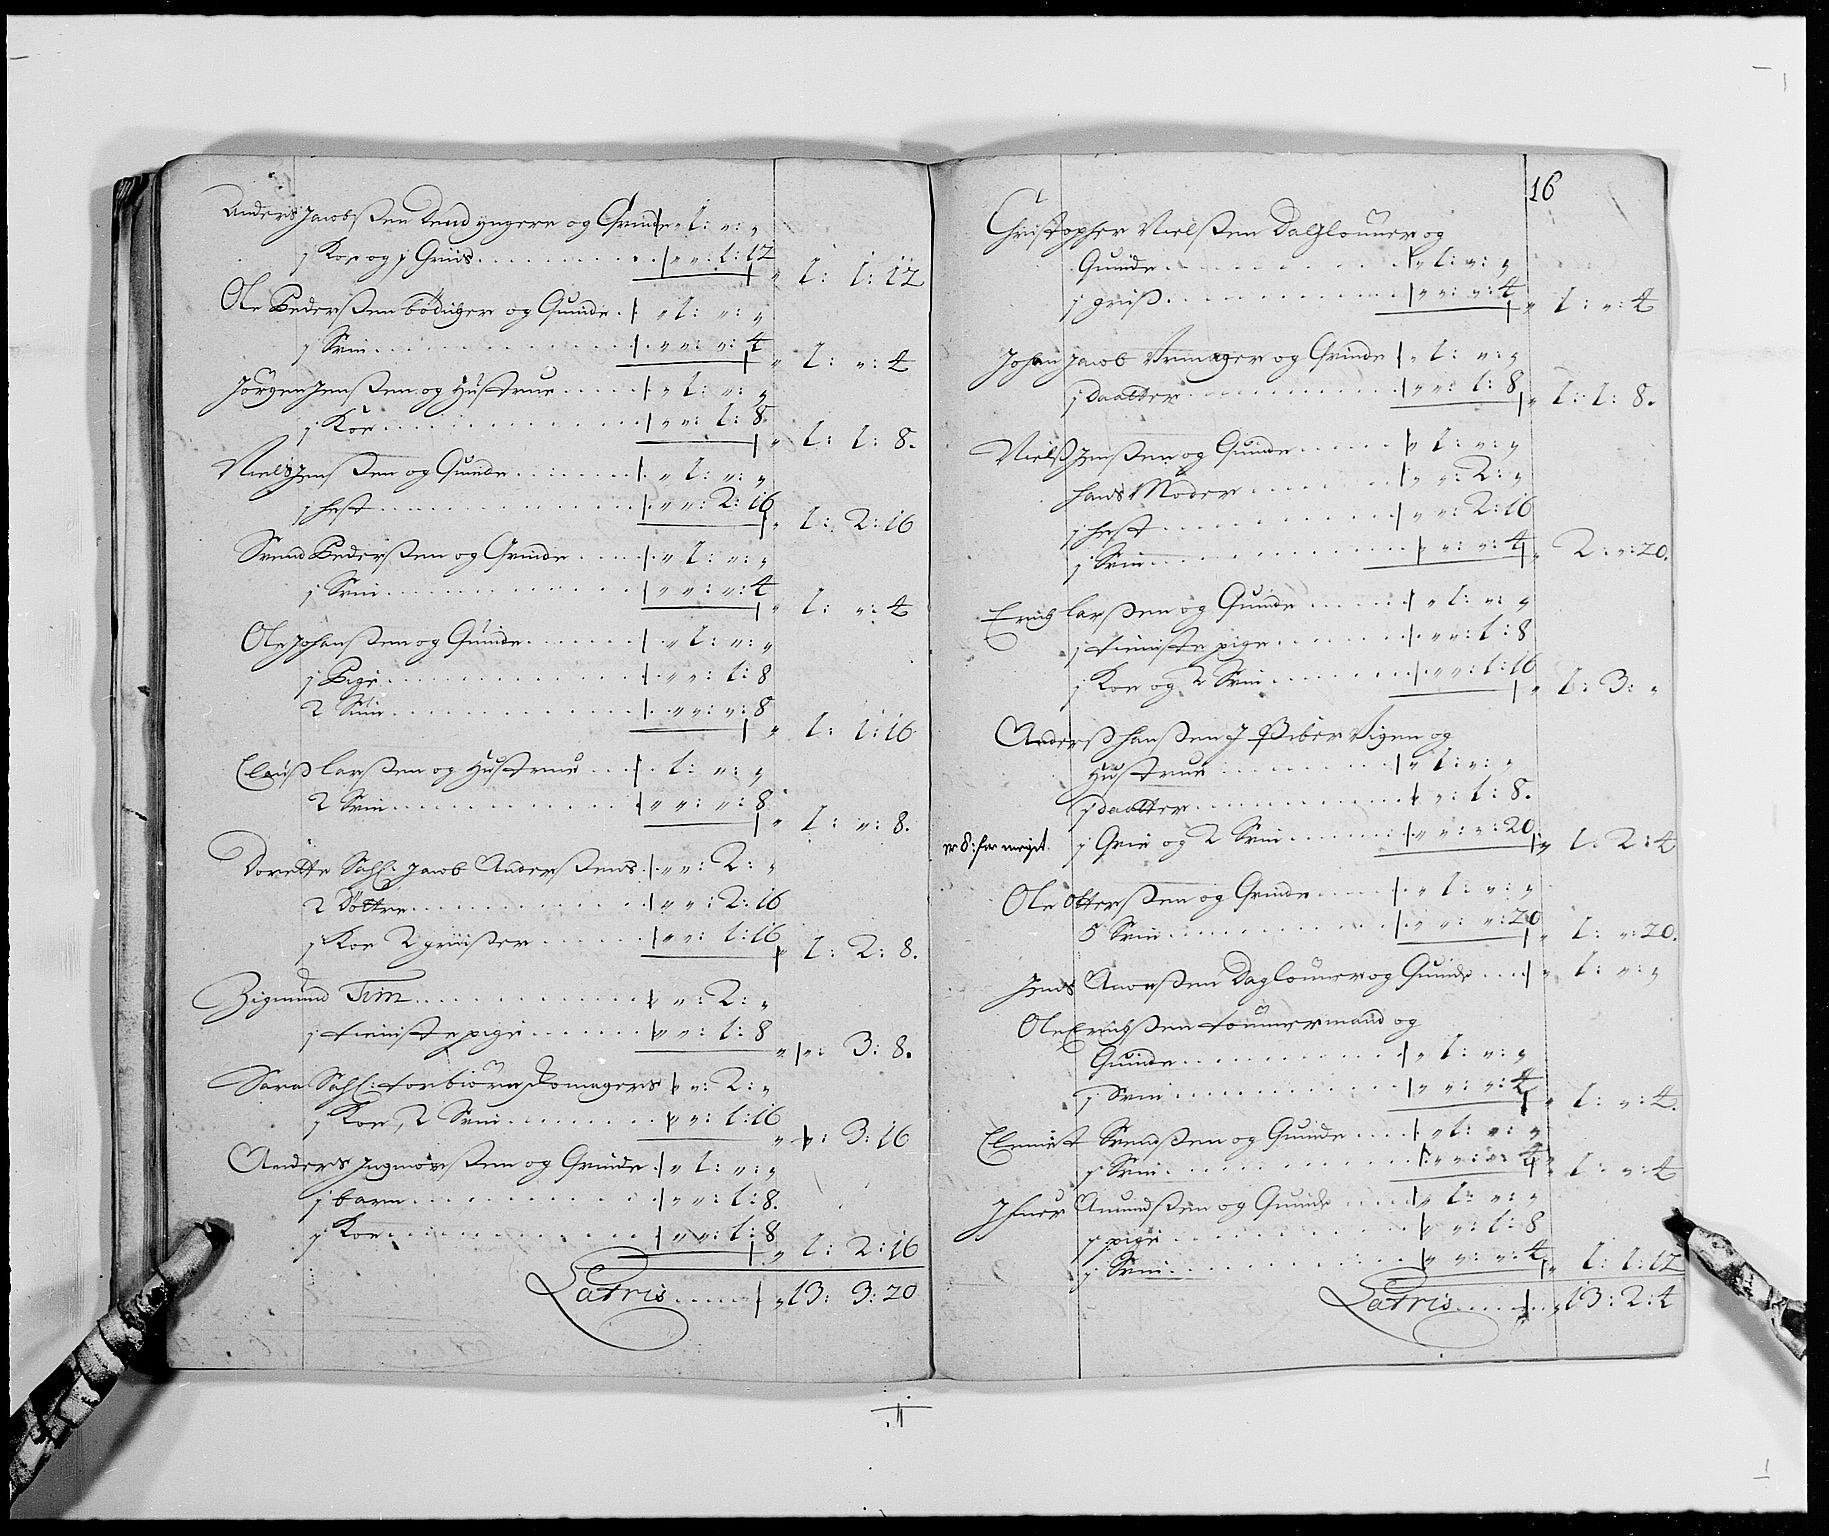 Anders Jacobsen dend yngere og Quinde " 1: ": "
1 Koe og 1 Griis " ": 1: 12
" 1: 1: 12
Ole Pedersen bødicher og Quinde " 1: ": "
1 Sviin " ": ": 4
" 1: ": 4
Jørgen Jenssen og Hustrue " 1: ": "
1 Koe " ": 1: 8.
" 1: 1: 8.
Niels Jenssen og Quinde " 1: ": "
1 hest " ": 2: 16
" 1: 2: 16
Svend Pederssen og Quinde " 1: ": "
1 Sviin " ": ": 4
" 1: ": 4
Ole Johanssen og Quinde " 1: ": "
1 Pige " ": 1: 8
2 Sviin " ": ": 8
" 1: 1: 16
Clauss Larssen og Hustrue 1: ": "
2 Sviin " ": ": 8
" 1: ": 8.
Dorette Sahl: Jacob Anderssens " ": 2: "
2 Døttre " ": 2: 16
1 Koe 2 griisser " ": 1: 16
" 1: 2: 8.
Zigmund Tim ": 2: "
1 tieniste pige ": 1: 8
" ": 3: 8.
Sara Sahl: torbiørn Skomagers ": 2: "
1 Koe, 2 Sviin ": 1: 16
" ": 3: 16
Anders Ingmorssen og Quinde " 1: ": "
1 barn " ": 1: 8.
1 Koe " ": 1: 8
" 1: 2: 16
Latris " 13: 3: 20
16
Christopher Nielssen Daglønner og
Quinde " 1: ": "
1 griiss " ": ": 4
" 1: ": 4
Johan Jacob Urmager og Quinde " 1: ": "
1 daatter " ": 1: 8
" 1: 1: 8.
Nielss Jenssen og Quinde 1: ": "
hans Moder " ": 2: "
1 hest " ": 2: 16
1 Sviin " ": ": 4
" 2: ": 20.
Erich Larssen og Quinde " 1: ": "
1 tieniste pige " ": 1: 8
1 Koe og 2 Sviin " ": 1: 16
" 1: 3: "
Anderss Hanssen J Piber Vigen og
Hustrue " 1: ": "
1 daatter ": 1: 8.
er 8: for meget. 1 Qvie og 2 Sviin " ": ": 20
" 1: 2: 4
Ole Otterssen og Quinde " 1: ": "
5 Sviin " ": ": 20
" 1: ": 20.
Jens Daglønner og Quinde " 1: ": "
Ole Erichssen tømmermand og
Quinde " 1: ": "
1 Sviin " ": ": 4
" 1: ": 4.
Clemet Svendssen og Quinde " 1: ": "
1 Sviin " ": ": 4
" 1: ": 4
Ifuer Amundssen og Quinde " 1: ": "
1 pige ": 1: 8
1 Sviin ": ": 4
" 1: 1: 12
Latris " 13: 2: 4